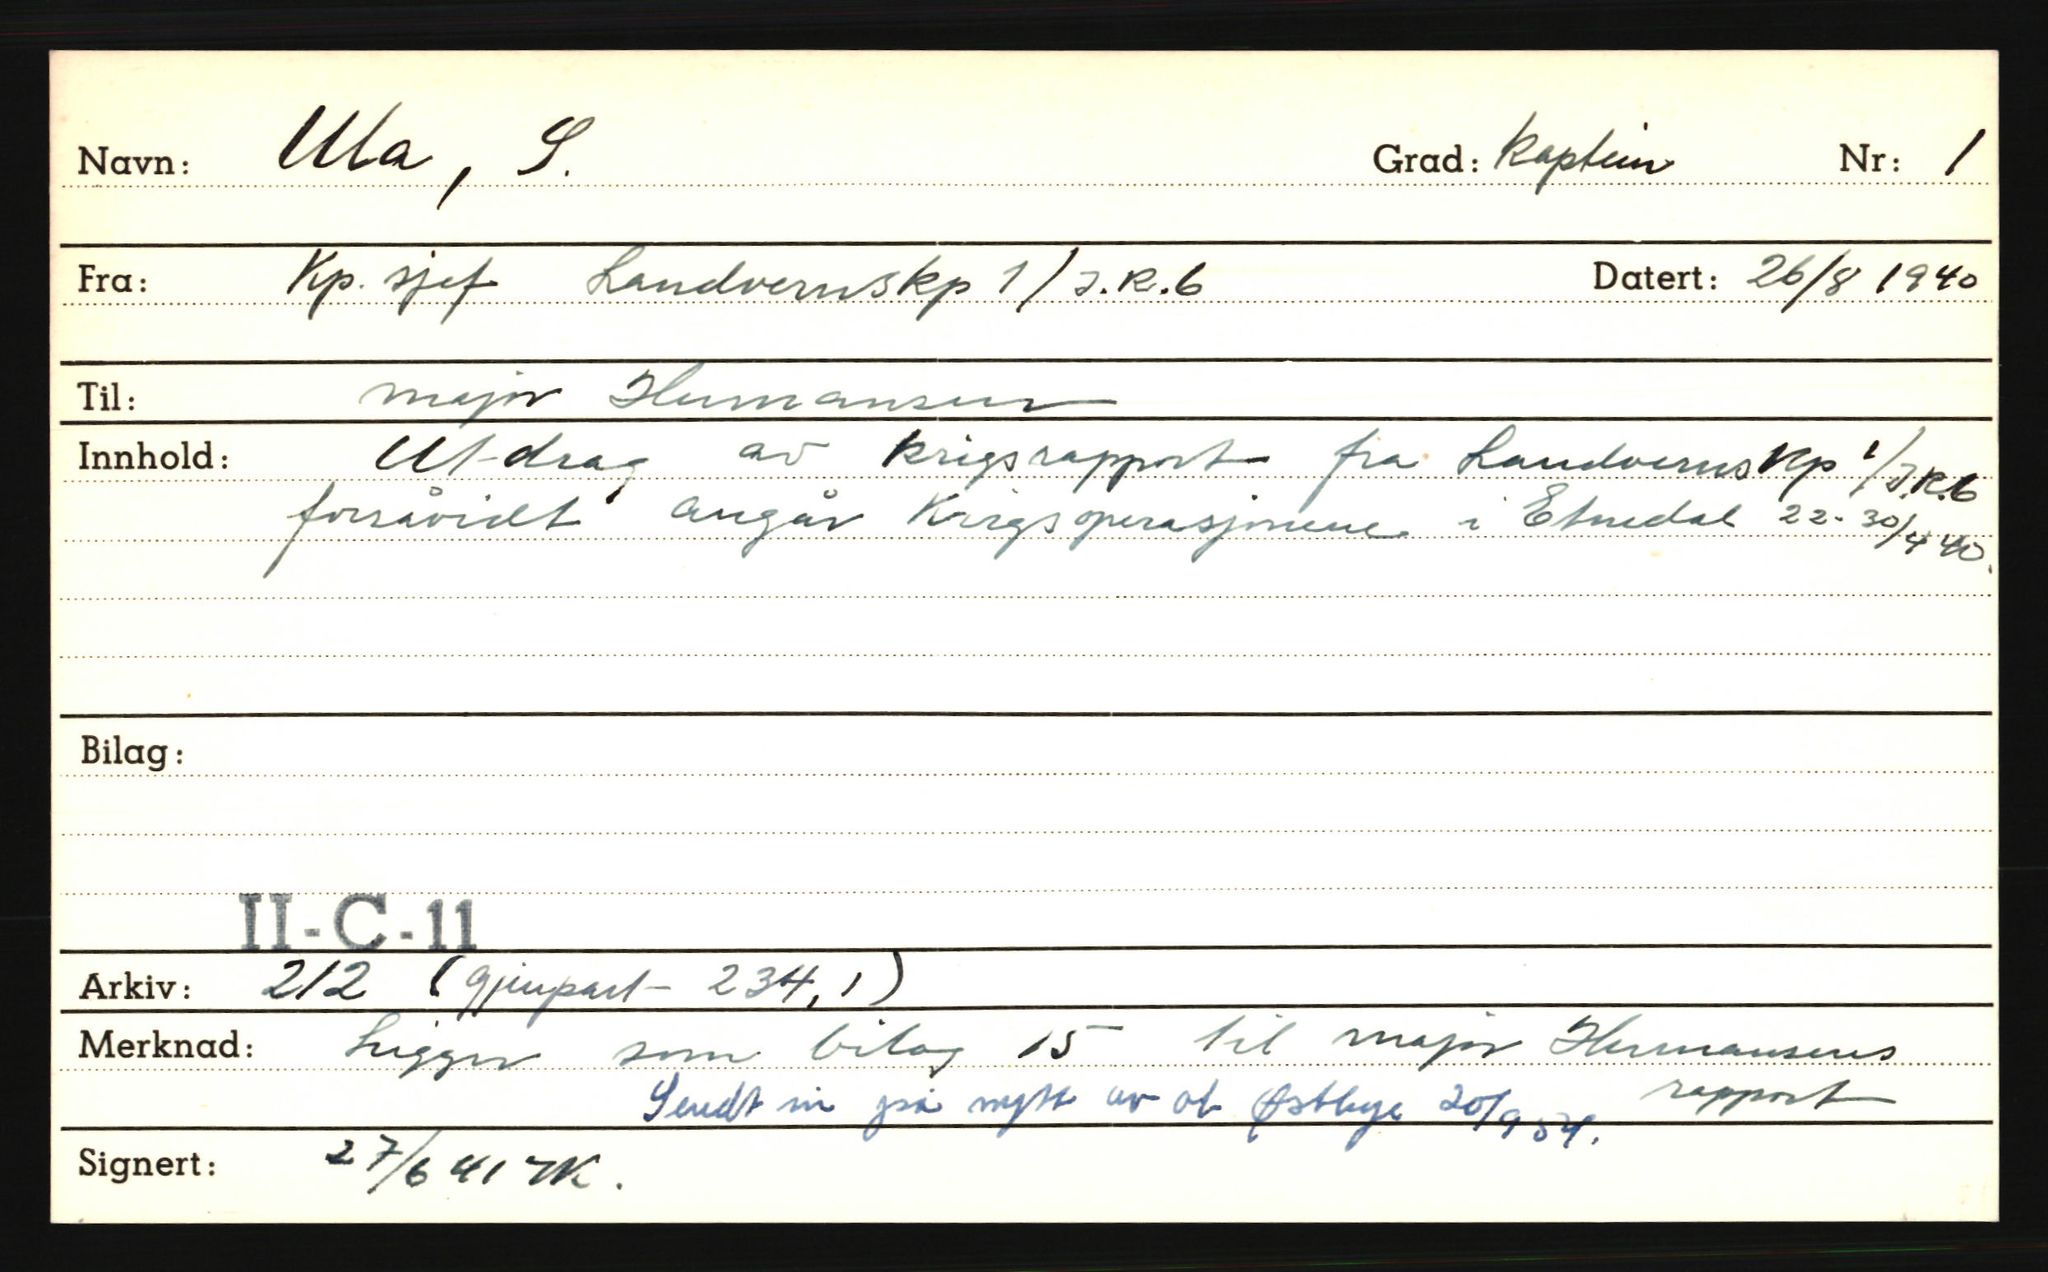 Navn: Ula, S. Grad: Kaptein Nr: 1
Fra: Kp. sjef Landvernskp 1/J.R.6 Datert: 26/8 1940
Til: major Hermansen
Innhold: Utdrag av krigsrapport fra Landvernskp 1/J.R.6
forsåvidt angår Krigsoperasjonene i Etnedal 22-30/4 40.
Bilag:
II-C-11
Arkiv: 212 (gjenpart- 234,1)
Merknad: Ligger som bilag 15 til major Hermansens
rapport
Sendt inn på nytt av ob Østbye 20/9 54.
Signert: 27/6 41 YK.